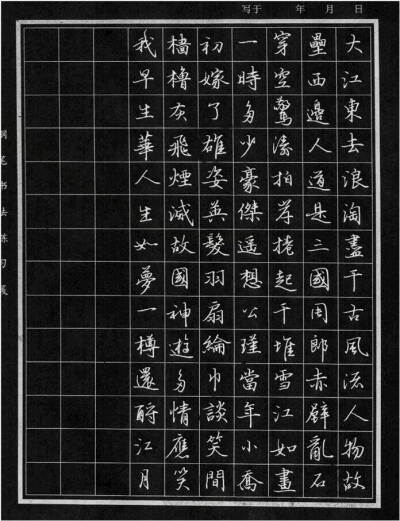 写于 年 月 日
大江東去浪淘盡千古風流人物故
壘西邊人道是三國周郎赤壁亂石
穿空驚濤拍岸捲起千堆雪江如畫
一時多少豪傑遥想公瑾當年小喬
初嫁了雄姿英髮羽扇綸巾談笑間
檣櫓灰飛煙滅故國神遊多情應笑
我早生華人生如夢一樽還酹江月
钢笔书法练习